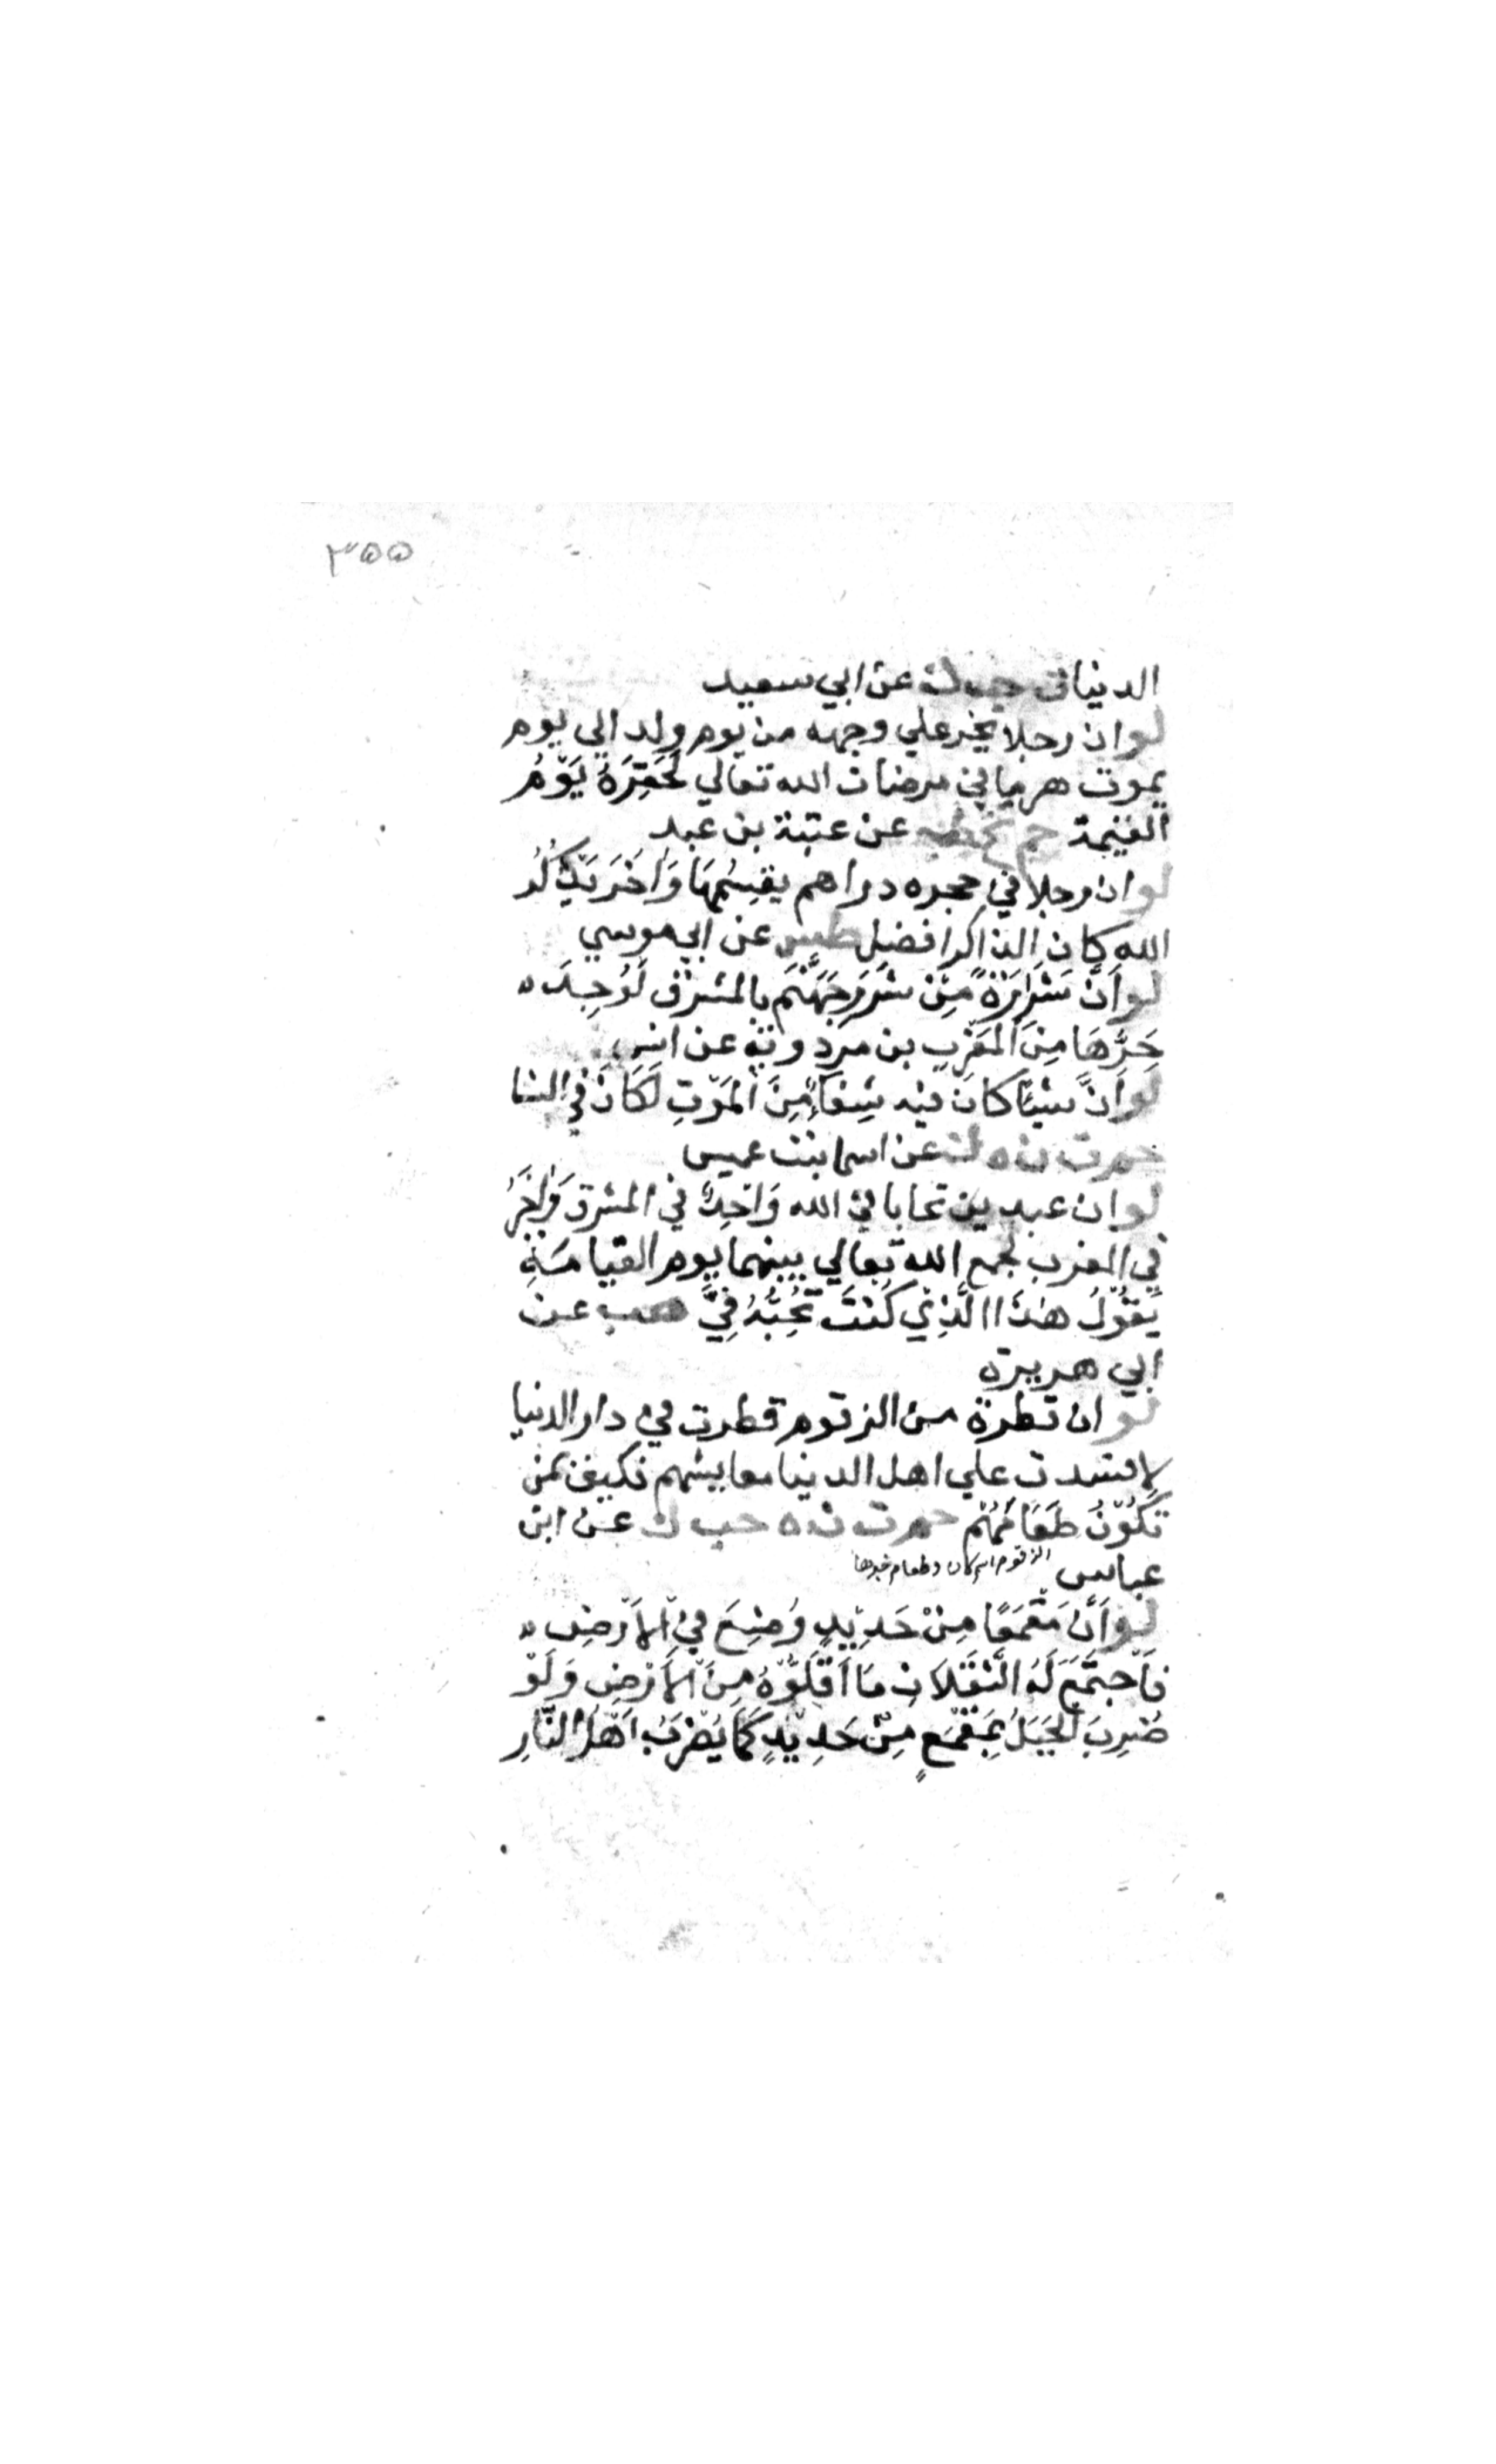 ٣٥٥
الدنيا ت حب ك عن ابي سعيد
لو ان رجلا يخر علي وجهه من يوم ولد الي يوم
يموت هرما في مرضات الله تعالي لَحَقِرَهُ يَوْمَ
القيمة حم تخ طب عن عتبة بن عبد
لو ان رجلا في حجره دراهم يقسِمُهَا وَاٰخَرَ يَذْكُرُ
الله كان الذاكر افضل طس عن ابي موسي
لو اَنَّ شَرَارَةً مِنْ شَرَرِ جَهَنَّمَ بالمشرق لَوُجِدَ
حَرُّهَا مِنَ الْمَغْرِبِ بن مردويه عن انس
لو اَنَّ شَيْئًا كانَ فيه شِفَاءٌ مِنَ الْمَوْتِ لَكَانَ فِي السنا
حم ت ن ه ك عن اسما بنت عميس
لو ان عبدين تحابا في الله وَاحِدٌ في المشرق وَاٰخَرُ
في المغرب لجمع الله تعالي بينهما يوم القيامَةِ
يَقُوْلُ هٰذَا الَّذِيْ كُنْتَ تُحِبُّهُ فِيَّ هب عن
ابي هريرة
لو ان قطرة من الزقوم قطرت في دار الدنيا
لافسدت علي اهل الدنيا معايشهم فكيف بمن
تَكُوْنُ طَعَامَهُمْ حم ت ن ه حب ك عن ابن
عباس
لو اَنَّ مَقْمَعًا مِنْ حَدِيْدٍ وُضِعَ فِيْ الْاَرْضِ
فَاَجْتَمَعَ لَهُ الثَّقَلَانِ مَا اَقَلُّوْهُ مِنَ الْاَرْضِ وَلَوْ
ضُرِبَ الْجَبَلُ بِمَقْمَعٍ مِنْ حَدِيْدٍ كَمَا يُضْرَبُ اَهْلُ النَّارِ